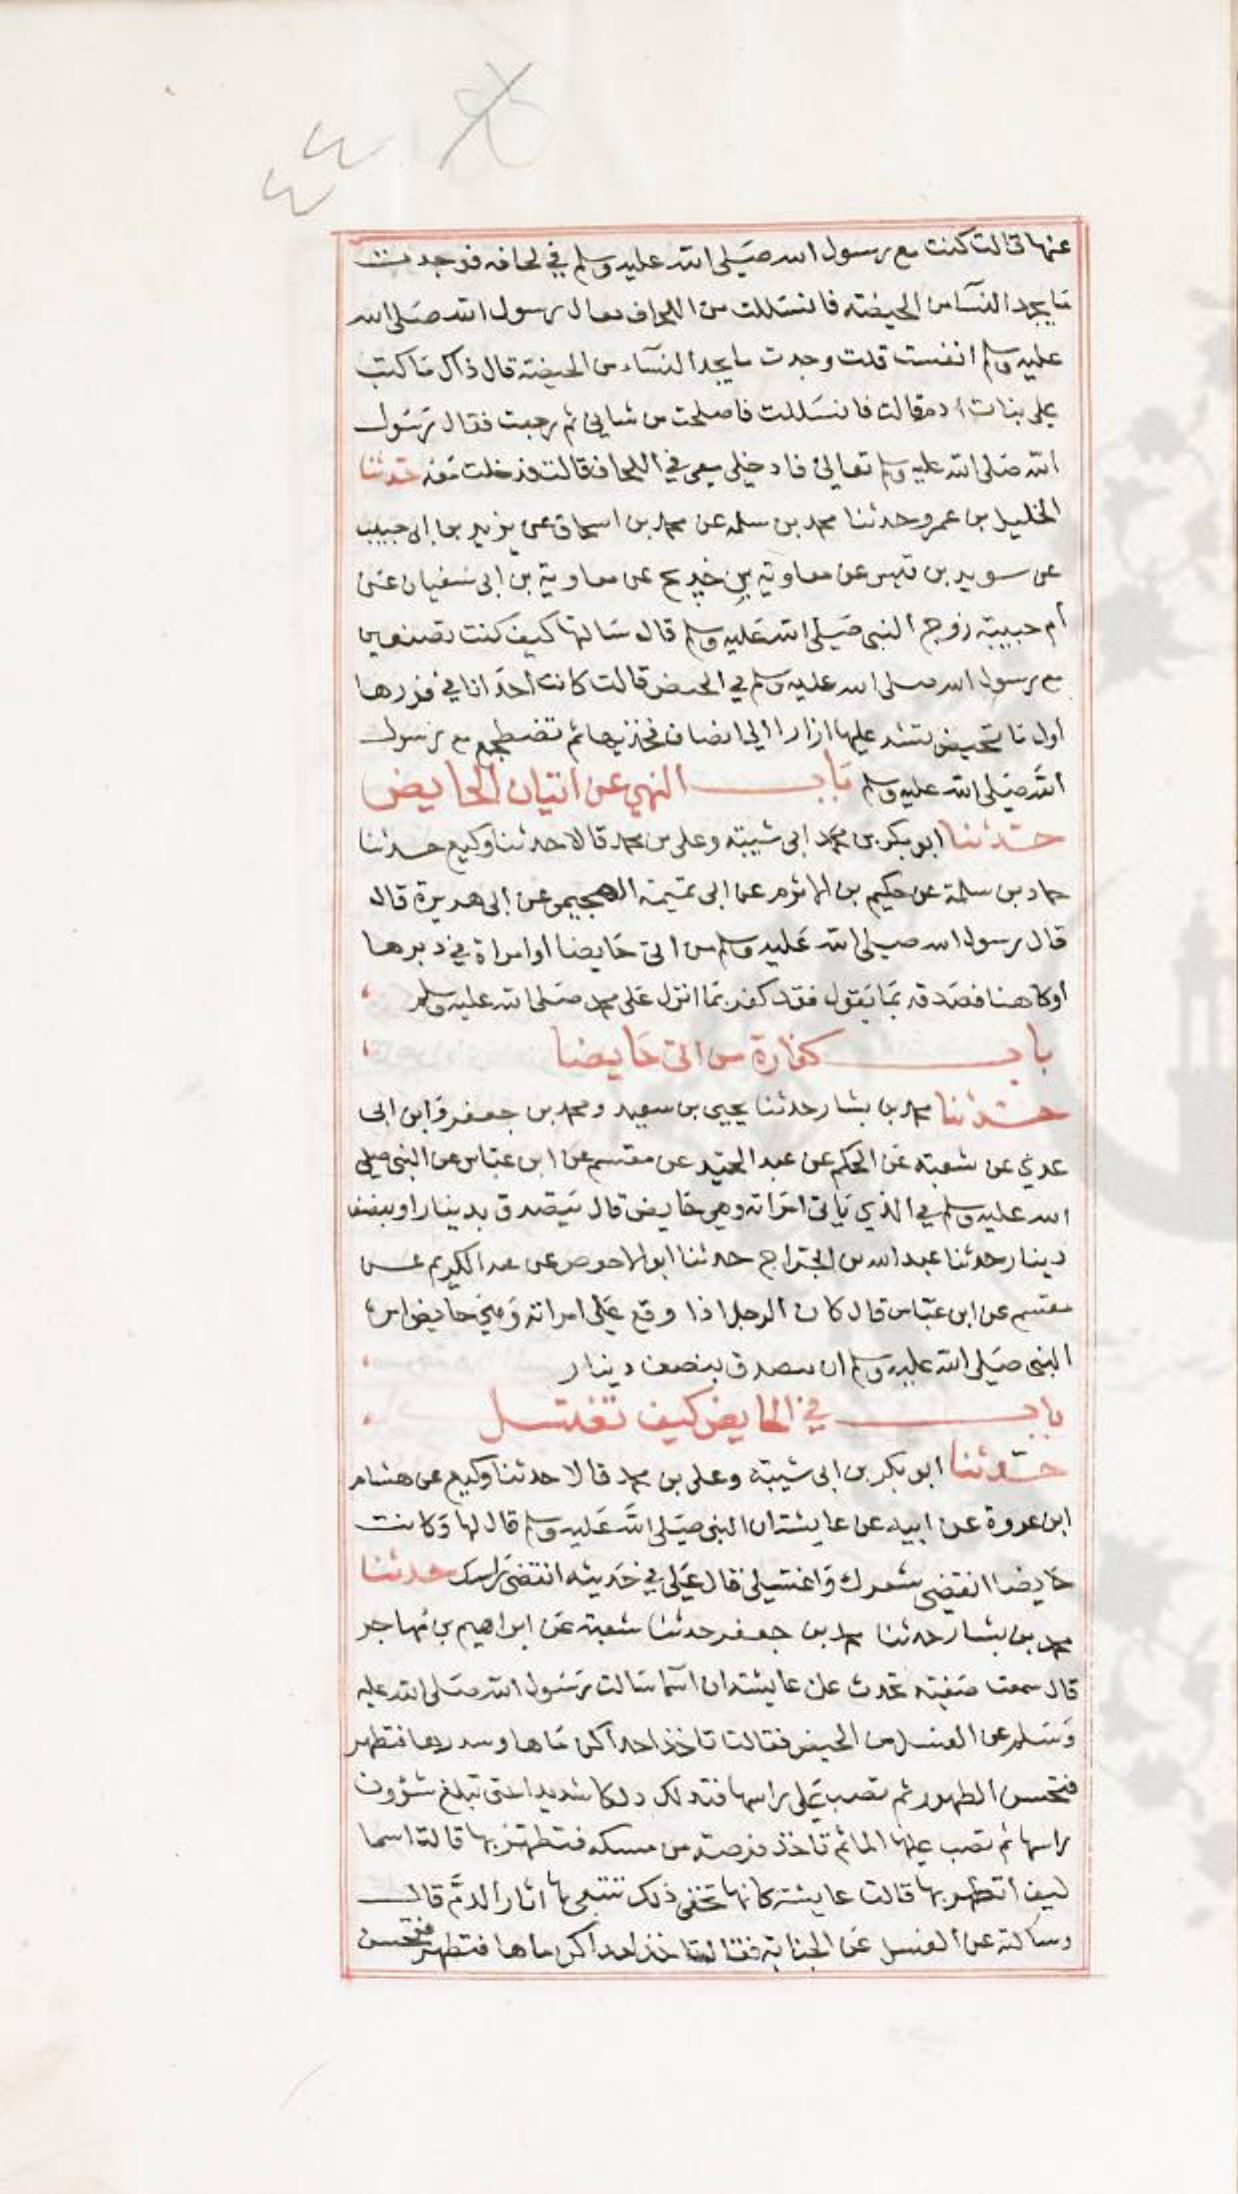 ٤٤
عنها قالت كنت مع رسول الله صلى الله عليه وسلم في لحافه فوجدت
ما يجد النسا من الحيضة فانسللت من اللحاف فقال رسول الله صلى الله
عليه وسلم انفست قلت وجدت ما يجد النساء من الحيضة قال ذاك ما كتب
على بنات ادم قالت فانسللت فاصلحت من شاني ثم رجعت فقال رسول
الله صلى الله عليه وسلم تعالى فادخلي معي في اللحاف قالت فدخلت معه حدثنا
الخليل بن عمرو حدثنا محمد بن سلمه عن محمد بن اسحاق عن يزيد بن ابي حبيب
عن سويد بن قيس عن معاوية بن خديج عن معاوية بن ابي سفيان عن
ام حبيبة زوج النبي صلى الله عليه وسلم قال سالتها كيف كنت تصنعين
مع رسول الله صلى الله عليه وسلم في الحيض قالت كانت احدانا في فورها
اول ما تحيض تشد عليها ازارا الى انصاف فخذيها ثم تضطجع مع رسول
الله صلى الله عليه وسلم باب النهي عن اتيان الحايض
حدثنا ابو بكر بن محمد ابي شيبة وعلي بن محمد قالا حدثنا وكيع حدثنا
حماد بن سلمة عن حكيم بن الاثرم عن ابي تميمة الهجيمي عن ابي هريرة قال
قال رسول الله صلى الله عليه وسلم من اتى حايضا او امراة في دبرها
او كاهنا فصدقه بما يقول فقد كفر بما انزل على محمد صلى الله عليه وسلم
باب كفارة من اتى حايضا
حدثنا محمد بن بشار حدثنا يحيى بن سعيد ومحمد بن جعفر وابن ابي
عدي عن شعبة عن الحكم عن عبد الحميد عن مقسم عن ابن عباس عن النبي صلى
الله عليه وسلم في الذي ياتي امراته وهي حايض قال يتصدق بدينار او بنصف
دينار حدثنا عبد الله بن الجراح حدثنا ابو الاحوص عن عبد الكريم عن
مقسم عن ابن عباس قال كان الرجل اذا وقع على امراته وهي حايض امره
النبي صلى الله عليه وسلم ان يتصدق بنصف دينار
باب في الحايض كيف تغتسل
حدثنا ابو بكر بن ابي شيبة وعلي بن محمد قالا حدثنا وكيع عن هشام
ابن عروة عن ابيه عن عايشة ان النبي صلى الله عليه وسلم قال لها وكانت
حايضا انقضي شعرك واغتسلي قال علي في حديثه انقضي راسك حدثنا
محمد بن بشار حدثنا محمد بن جعفر حدثنا شعبة عن ابراهيم بن مهاجر
قال سمعت صفية تحدث عن عايشة ان اسما سالت رسول الله صلى الله عليه
وسلم عن الغسل من الحيض فقالت تاخذ احداكن ماها وسدرها فتطهر
فتحسن الطهور ثم تصب على راسها فتدلكه دلكا شديدا حتى تبلغ شؤون
راسها ثم تصب عليها الما ثم تاخذ فرصة من مسكه فتطهر بها قالت اسما
كيف اتطهر بها قالت عايشة كانها تخفي ذلك تتبعي بها اثار الدم قال
وسالته عن الغسل عن الجنابة فقال تاخذ احداكن ماها فتطهر فتحسن